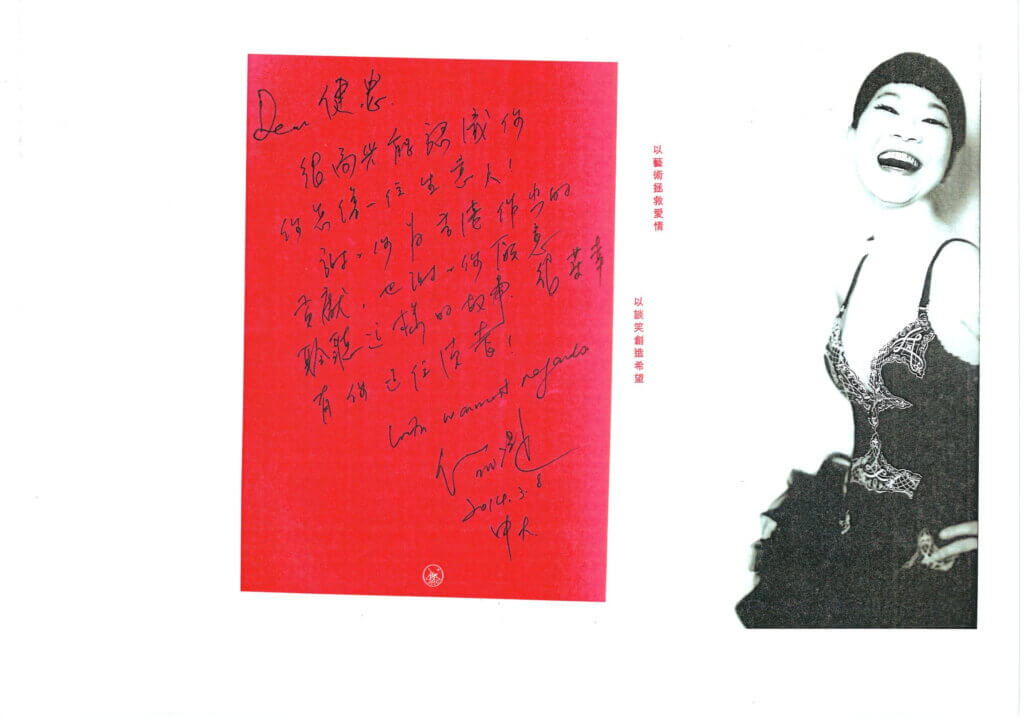 Dear 健忠.
很高兴能認識你
你怎一位生意人!
謝々你為香港作出的
貢獻,也謝々你願意
聆聽這樣的故事. 很荣幸
有你這位讀者!
with warmest regards
2014.3.8
中大.
以藝術拯救愛情
以談笑創造希望